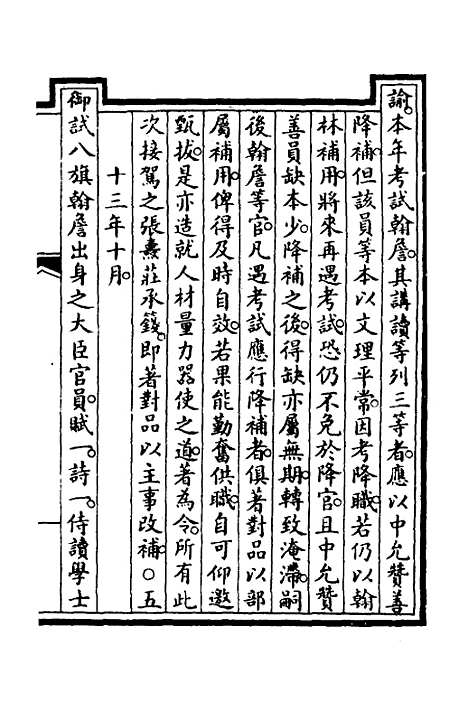 諭。本年考試翰詹。其講讀等列三等者。應以中允贊善
降補。但該員等本以文理平常。因考降職。若仍以翰
林補用。將來再遇考試。恐仍不免於降官。且中允贊
善員缺本少。降補之後。得缺亦屬無期。轉致淹滯。嗣
後翰詹等官。凡遇考試應行降補者。俱著對品以部
屬補用。俾得及時自效。若果能勤奮供職。自可仰邀
甄拔。是亦造就人材量力器使之道。著為令。所有此
次接駕之張燾莊承籛。即著對品以主事改補。○五
十三年十月。
御試八旗翰詹出身之大臣官員。賦一。詩一。侍讀學士